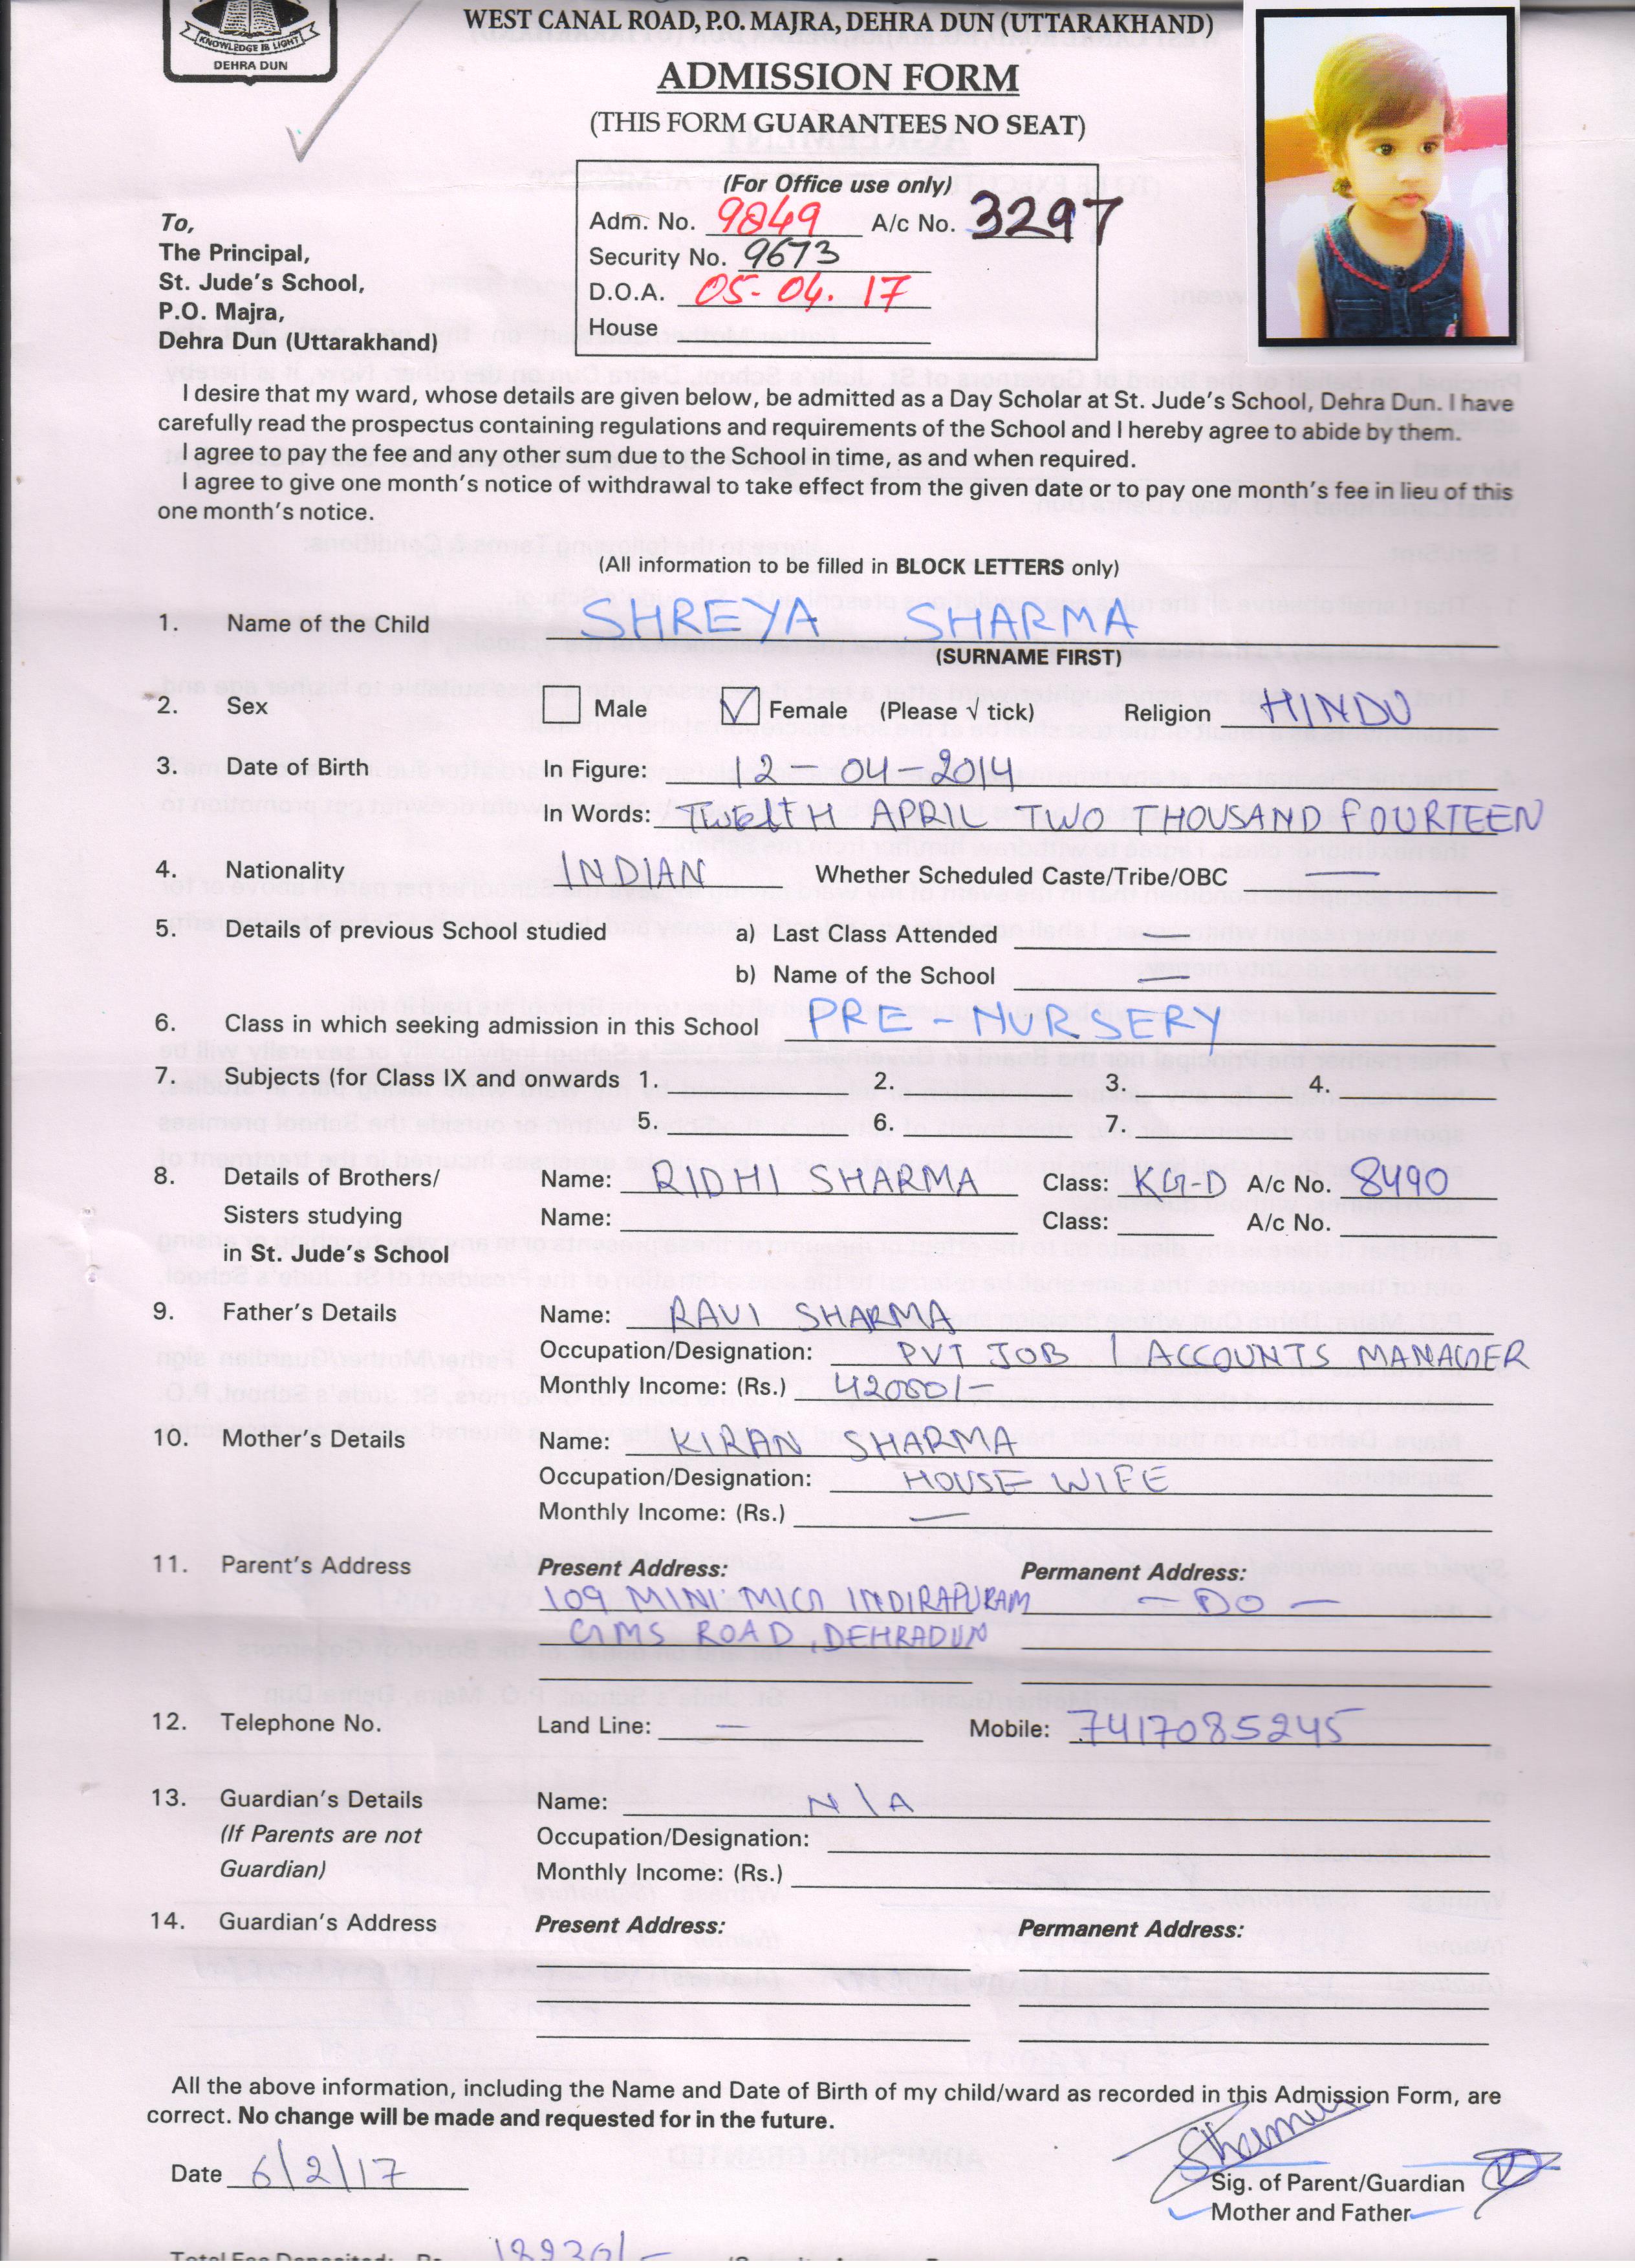 KNOWLEDGE IS LIGHT
DEHRA DUN
WEST CANAL ROAD, P.O. MAJRA, DEHRA DUN (UTTARAKHAND)
ADMISSION FORM
(THIS FORM GUARANTEES NO SEAT)
(For Office use only)
Adm. No. 9849 A/c No. 3297
Security No. 9673
D.O.A. 05-04.17
House
To,
The Principal,
St. Jude's School,
P.O. Majra,
Dehra Dun (Uttarakhand)
I desire that my ward, whose details are given below, be admitted as a Day Scholar at St. Jude's School, Dehra Dun. I have
carefully read the prospectus containing regulations and requirements of the School and I hereby agree to abide by them.
I agree to pay the fee and any other sum due to the School in time, as and when required.
I agree to give one month's notice of withdrawal to take effect from the given date or to pay one month's fee in lieu of this
one month's notice.
(All information to be filled in BLOCK LETTERS only)
1. Name of the Child SHREYA SHARMA
(SURNAME FIRST)
2. Sex Male Female (Please √ tick) Religion HINDU
3. Date of Birth In Figure: 12-04-2014
In Words: TWELTH APRIL TWO THOUSAND FOURTEEN
4. Nationality INDIAN Whether Scheduled Caste/Tribe/OBC —
5. Details of previous School studied a) Last Class Attended —
b) Name of the School —
6. Class in which seeking admission in this School PRE-NURSERY
7. Subjects (for Class IX and onwards 1. 2. 3. 4.
5. 6. 7.
8. Details of Brothers/ Name: RIDHI SHARMA Class: KG-D A/c No. 8490
Sisters studying Name: Class: A/c No.
in St. Jude's School
9. Father's Details Name: RAVI SHARMA
Occupation/Designation: PVT JOB / ACCOUNTS MANAGER
Monthly Income: (Rs.) 42000/-
10. Mother's Details Name: KIRAN SHARMA
Occupation/Designation: HOUSE WIFE
Monthly Income: (Rs.) —
11. Parent's Address Present Address: Permanent Address:
109 MINI MICA INDIRAPURAM — DO —
GMS ROAD, DEHRADUN
12. Telephone No. Land Line: — Mobile: 7417085245
13. Guardian's Details Name: N\A
(If Parents are not Occupation/Designation:
Guardian) Monthly Income: (Rs.)
14. Guardian's Address Present Address: Permanent Address:
All the above information, including the Name and Date of Birth of my child/ward as recorded in this Admission Form, are
correct. No change will be made and requested for in the future.
Date 6/2/17
Sig. of Parent/Guardian
Mother and Father